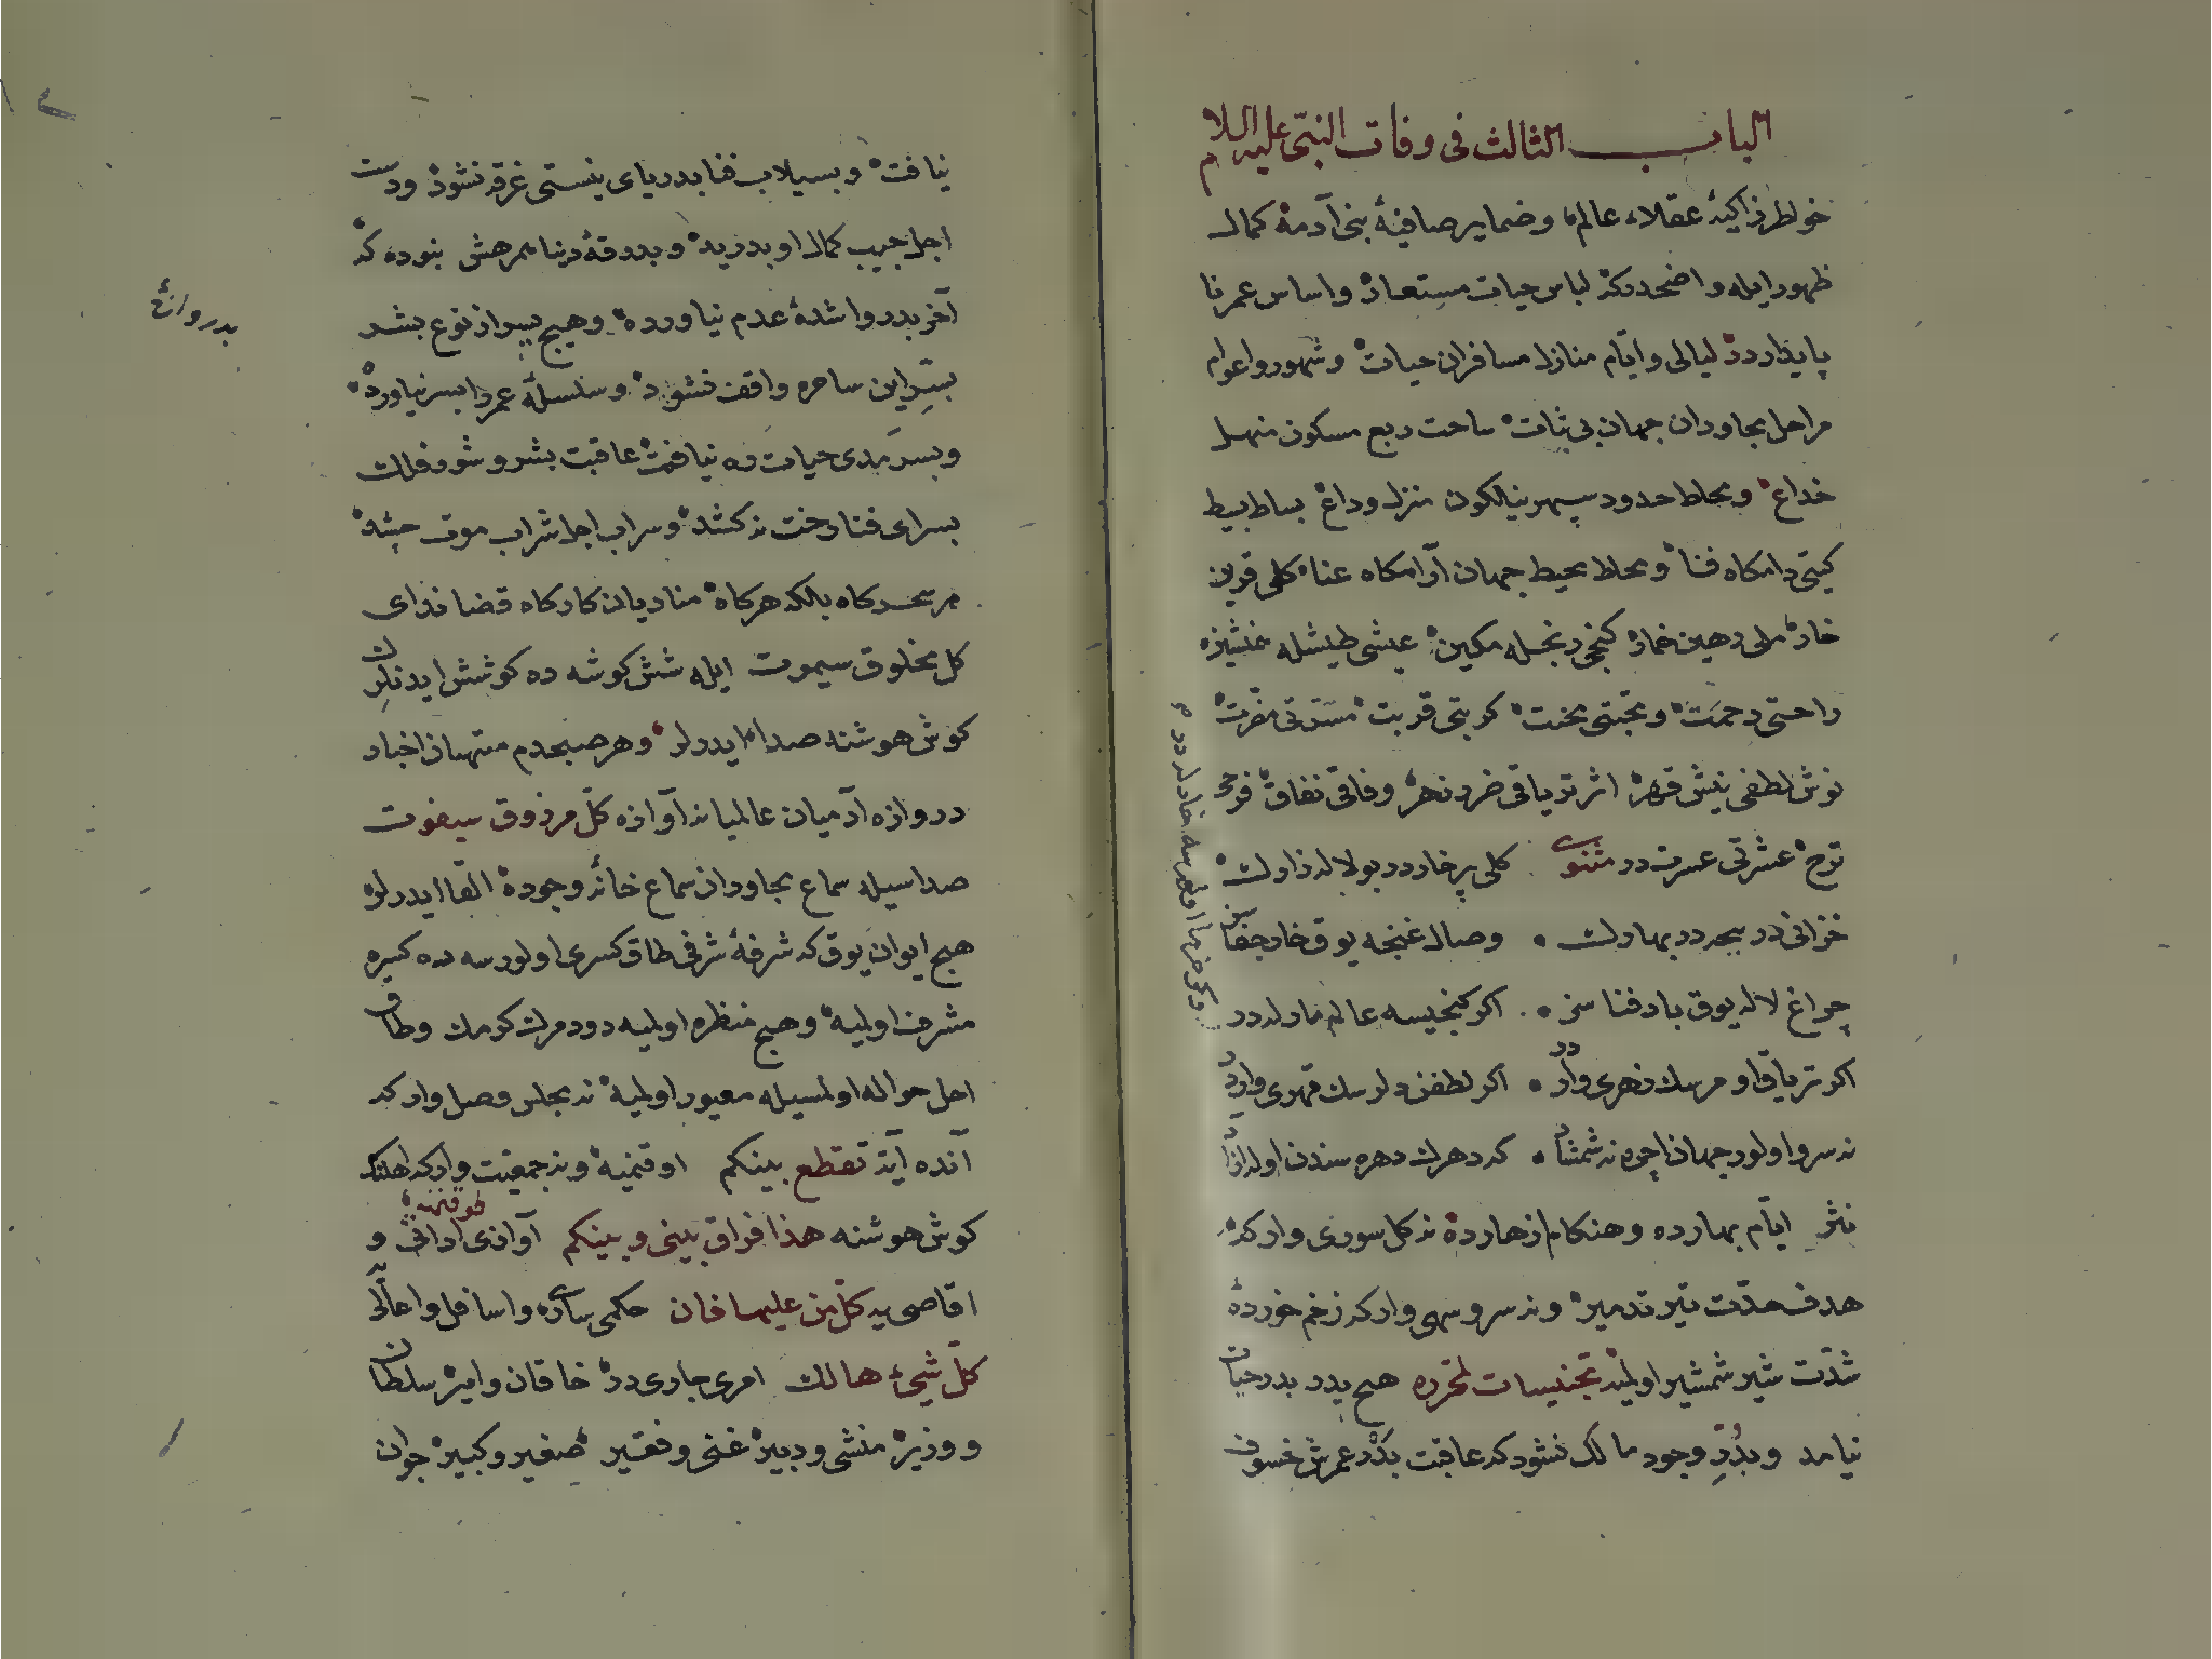 الباب الثالث فى وفات النبى عليه السلام
خواطر زاكيۀ عقلاء عالم و ضماير صافيۀ بنى آدمه كمال
ظهور ايله واضحدركه لباس حيات مستعار و اساس عمر نا
پايداردر ليالى و ايام منازل مسافران حيات و شهور و اعوام
مراحل مجاوران جهان بى ثبات ساحت ربع مسكون منهل
خداع و محاط حدود سپهر نيلكون منزل وداع بساط بسيط
كيتى دامكاه فنا و محاط محيط جهان آرامكاه عنا كلى قرين
خار ملى رهين خمار كنجى رنجله مكين عيشى طيشله همنشيندر
راحتى زحمت و محبتى محنت كربتى قربت مسرتى مضرت
نوش لطفى نيش قهر اثر ترياقى ضرر زهر وفاقى نفاق فرحى
ترح عشرتى عسرت در مثنوى كلى پر خاردر بو لاله زارك
خزانى در بيحددر بهارك وصال غنچه يوق خار جفاسز
چراغ لاله يوق باد فنا سز اكر كنجيسه عالم مارلردر
اكر ترياق اومرسك زهرى واردر اكر لطفن ديلرسك قهرى واردر
نه سرو اولور جهان ايچره نه شمشاد كه دهرك دهره سندن اوله آزاد
نثر ايام بهارده و هنكام ازهارده نه كل سورى واركه
هدف حدت تير تدمير و نه سرو سهى واركه زخم خورده
شدت شير شمشير اوليه تجنيسات لمحرره هيچ پدر بدر حيات
نيامد و بدر وجود مالك نشود كه عاقبت بدر عمرش خسوف
وكر خرما اومرسه خارلردر
نيافت و بسيلاب فنا بدرياى نيستى غرق نشود و دست
اجل جيب كمال او بدريد و بدرقۀ دنيا همرهش نبوده كه
آخر بدروازۀ عدم نياورده و هيچ پسر از نوع بشر
بسر اين ساحره واقف نشود و سلسلۀ عمر را بسر نياورد
و بسرمدى حيات ره نيافت عاقبت بشر و شور فلك
بسراى فنا رخت نه كشد و سراب اجل شراب موت چشد
هر سحركاه بلكه هر كاه مناديان كاركاه قضا نداى
كل مخلوق سيموت ايله شش كوشه ده كوشش ايدنلرك
كوش هوشنه صدالر ايدرلر و هر صبحدم منهيان اخبار
دروازه آدميان عالميانه آوازه كل مرزوق سيفوت
صداسيله سماع مجاوران سماع خانۀ وجوده القا ايدرلر
هيچ ايوان يوق كه شرفۀ شرفى طاق كسرى اولورسه ده كيره
مشرف اوليه و هيچ منظره اوليه دود مرك كومك و طاق
اجل حواله اولمسيله معيور اوليه نه مجلس وصل واركه
آنده آيت تقطع بينكم اوقنميه و نه جمعيت واركه اهلنك
كوش هوشنه هذا فراق بينى و بينكم آوازى طوقنميه ادانى و
اقاصى يه كل من عليها فان حكمى سارى و اسافل و اعالى يه
كل شىء هالك امرى جارى در خاقان و امير سلطان
و وزير منشى و دبير غنى و فقير صغير و كبير جوان
بدروازۀ